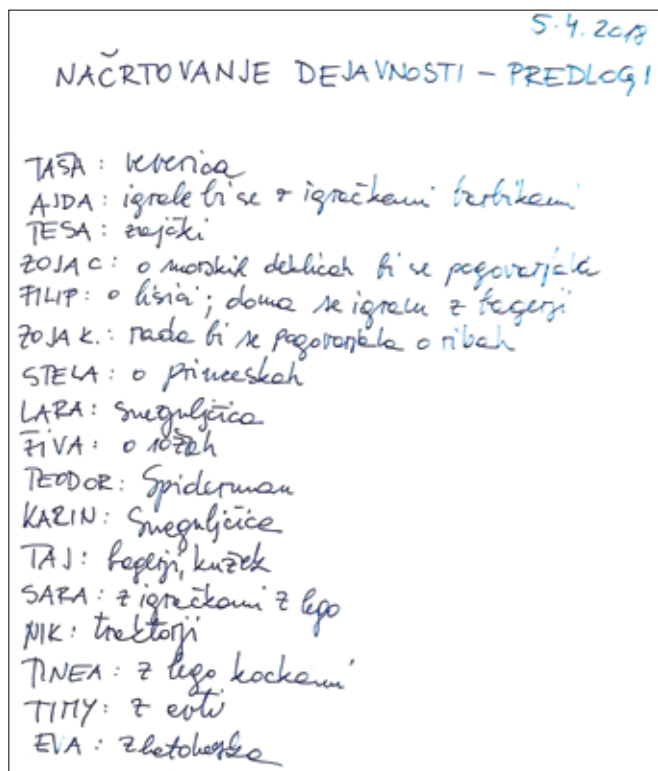 5.4.2018
NAČRTOVANJE DEJAVNOSTI - PREDLOGI
TAŠA: veverica
AJDA: igrale bi se z igračkami barbikami
TESA: zajčki
ZOJA C: o morskih deklicah bi se pogovarjala
FILIP: o lisici; doma se igram z bagerji
ZOJA K.: rada bi se pogovarjala o ribah
STELA: o princeskah
LARA: Sneguljčica
ŽIVA: o rožah
TEODOR: Spiderman
KARIN: Sneguljčica
TAJ: bagerji, kužek
SARA: z igračkami z lego
NIK: traktorji
TINEA: z lego kockami
TIMY: z avti
EVA: Zlatolaska